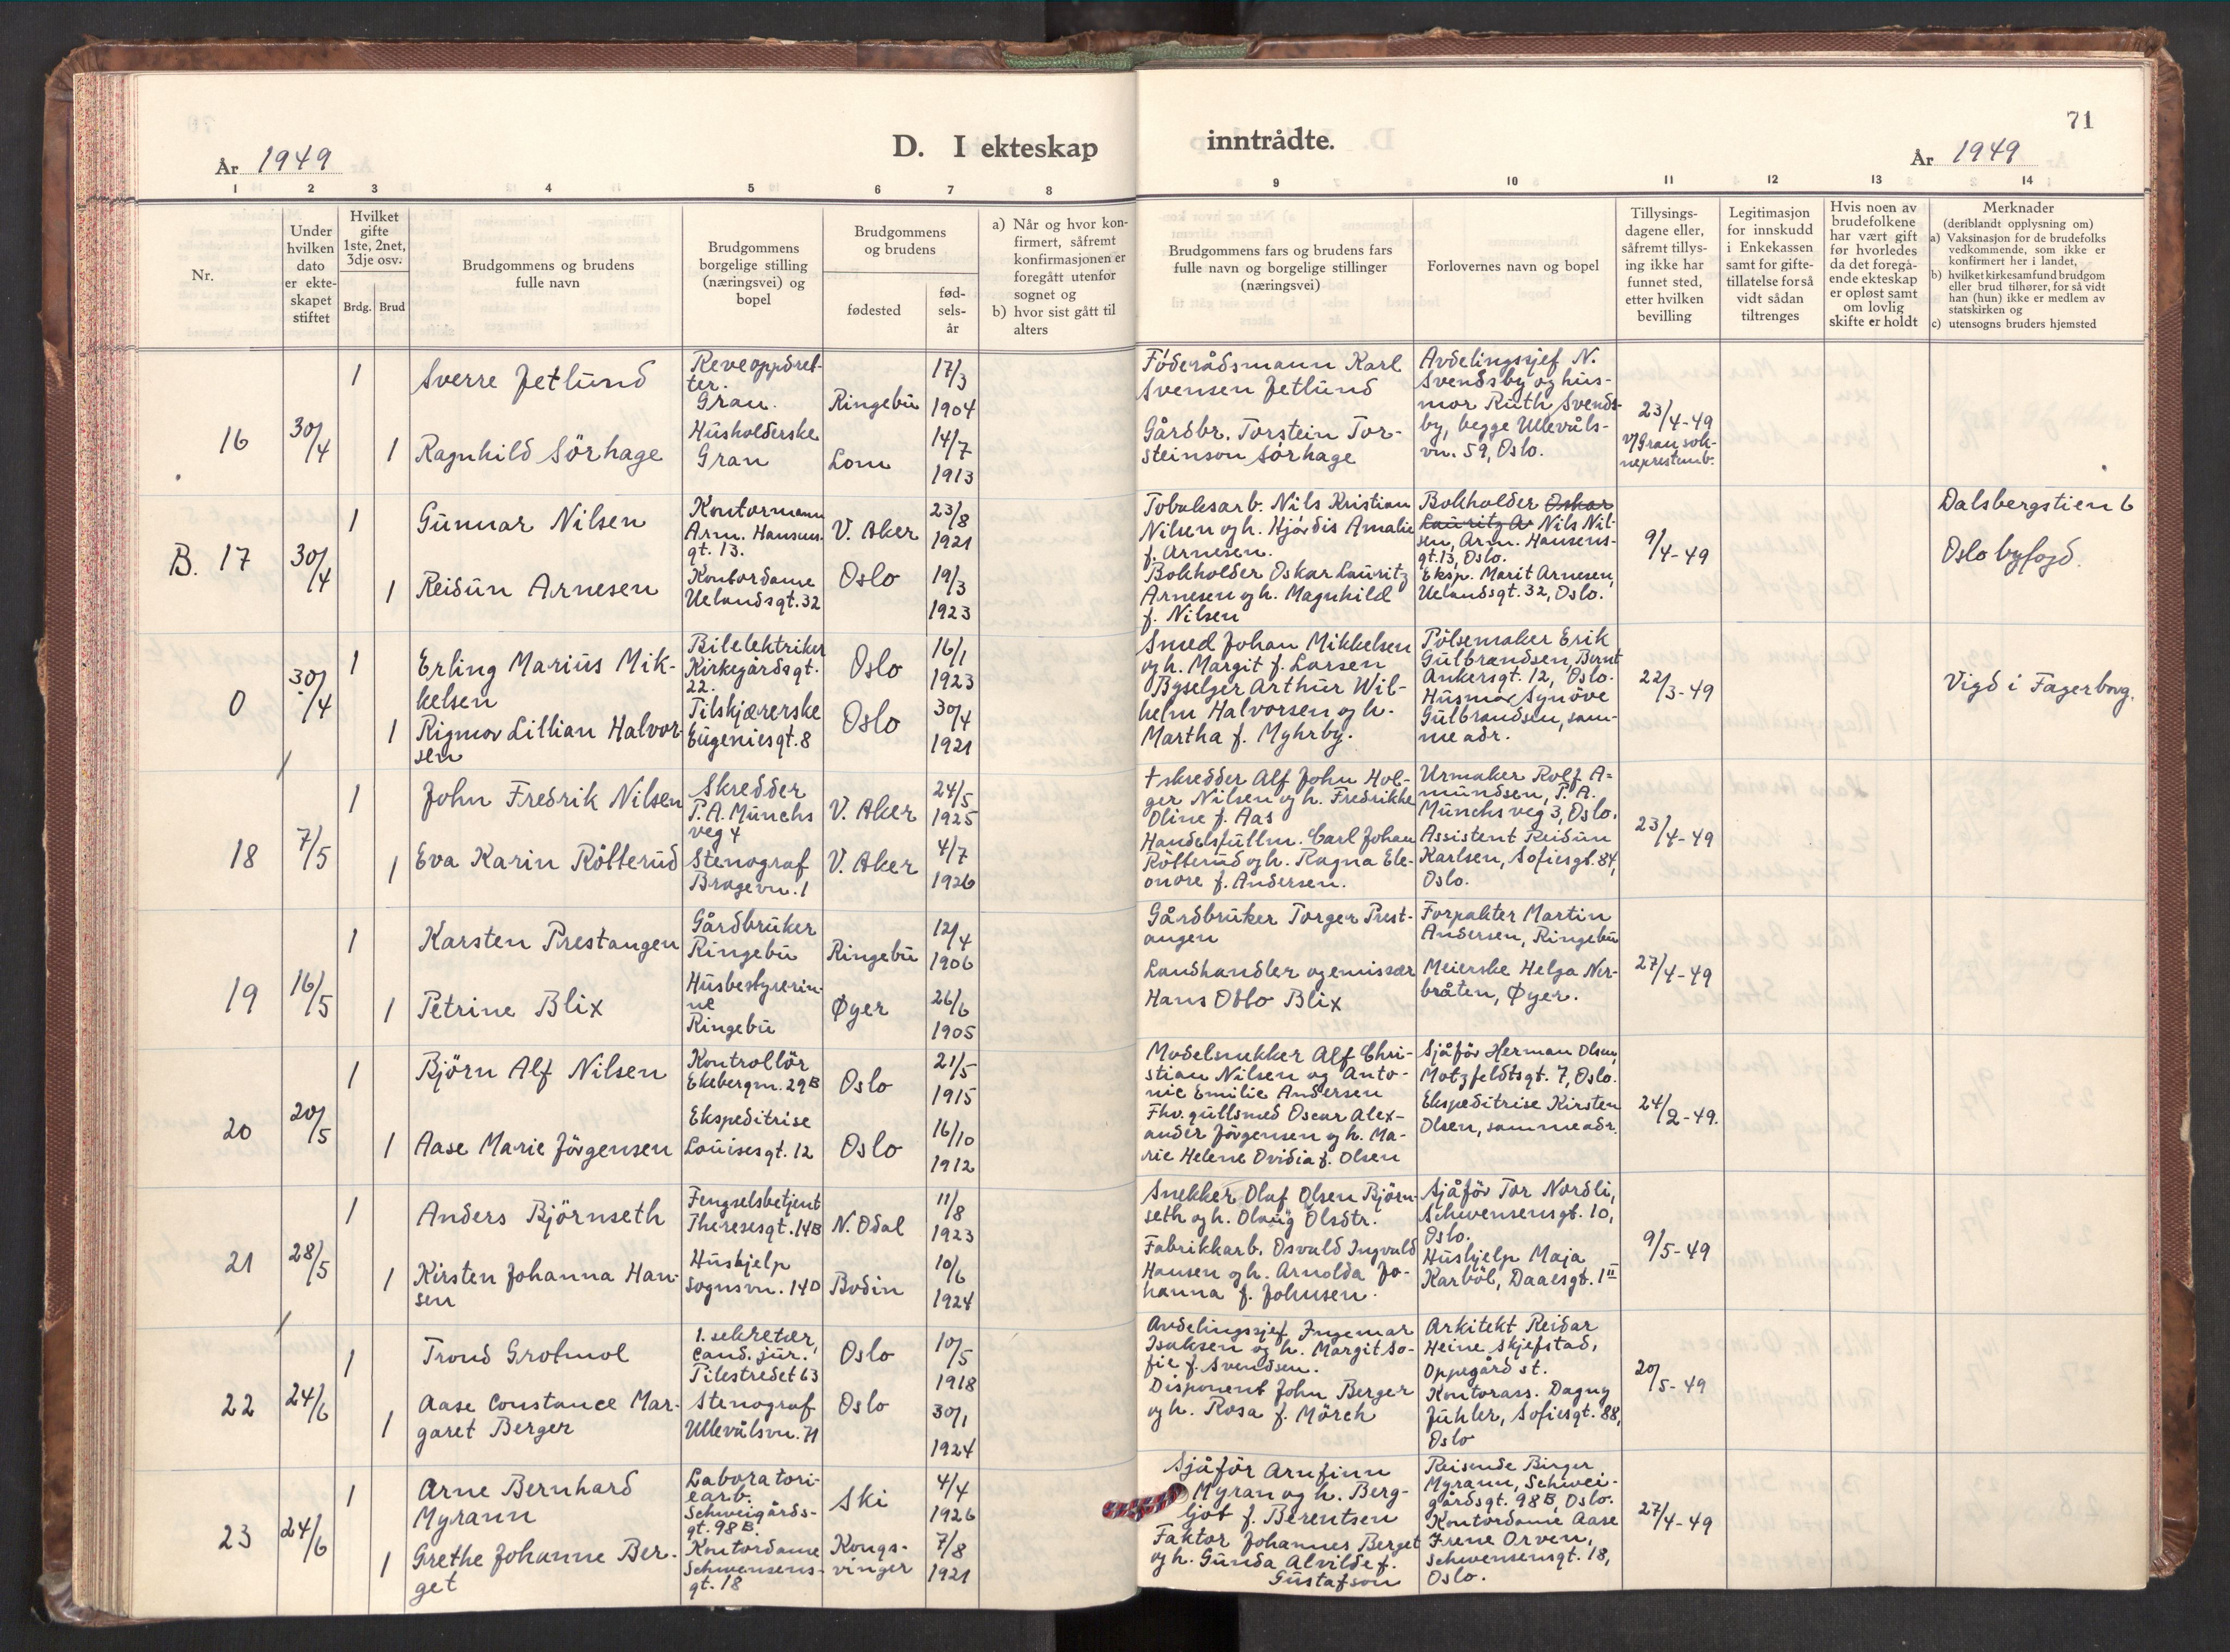 71
D. I ekteskap inntrådte.
År 1949
År 1949
1 2 3 4 5 6 7 8 9 10 11 12 13 14
Nr.
Under
hvilken
dato
er ekte-
skapet
stiftet
Hvilket
gifte
1ste, 2net,
3dje osv.
Brdg. Brud
Brudgommens og brudens
fulle navn
Brudgommens
borgelige stilling
(næringsvei) og
bopel
Brudgommens
og brudens
fødested
fød-
sels-
år
a) Når og hvor kon-
firmert, såfremt
konfirmasjonen er
foregått utenfor
sognet og
b) hvor sist gått til
alters
Brudgommens fars og brudens fars
fulle navn og borgelige stillinger
(næringsvei)
Forlovernes navn og bopel
Tillysings-
dagene eller,
såfremt tillys-
ing ikke har
funnet sted,
etter hvilken
bevilling
Legitimasjon
for innskudd
i Enkekassen
samt for gifte-
tillatelse for så
vidt sådan
tiltrenges
Hvis noen av
brudefolkene
har vært gift
før hvorledes
da det foregå-
ende ekteskap
er opløst samt
om lovlig
skifte er holdt
Merknader
(deriblandt opplysning om)
a) Vaksinasjon for de brudefolks
vedkommende, som ikke er
konfirmert her i landet,
b) hvilket kirkesamfund brudgom
eller brud tilhører, for så vidt
han (hun) ikke er medlem av
statskirken og
c) utensogns bruders hjemsted
16
30/4
1
Sverre Jetlund
Reveoppdret-
ter.
Gran.
Ringebu
17/3
1904
1
Ragnhild Sörhage
Husholderske
Gran
Lom
14/7
1913
Föderådsmann Karl
Svensen Jetlund
Gårdbr. Torstein Tor-
steinson Sörhage
Avdelingssjef N.
Svendsby og hus-
mor Ruth Svends-
by, begge Ullevåls-
vn. 59, Oslo.
23/4-49
v/Gran sok-
neprestemb.
B. 17
30/4
1
Gunnar Nilsen
Kontormann
Arn. Hansens.
gt. 13.
V. Aker
23/8
1921
1
Reidun Arnesen
Kontordame
Uelandsgt. 32
Oslo
19/3
1923
Tobaksarb. Nils Kristian
Nilsen og h. Hjördis Amalie
f. Arnesen.
Bokholder Oskar Lauritz
Arnesen og h. Magnhild
f. Nilsen
Bokholder Oskar
Lauritz A Nils Nil-
sen, Arn. Hansens-
gt. 13, Oslo.
Eksp. Marit Arnesen,
Uelandsgt. 32, Oslo.
9/4-49
Dalsbergstien 6
Oslo byfogd.
0
30/4
1
Erling Marius Mik-
kelsen
Bilelektriker
Kirkegårdsgt.
22.
Oslo
16/1
1923
1
Rigmor Lillian Halvor-
sen
Tilskjærerske
Eugeniesgt. 8
Oslo
30/4
1921
Smed Johan Mikkelsen
og h. Margit f. Larsen
Byselger Arthur Wil-
helm Halvorsen og h.
Martha f. Myhrby.
Pölsemaker Erik
Gulbrandsen, Bernt
Ankersgt. 12, Oslo.
Husmor Synöve
Gulbrandsen, sam-
me adr.
22/3-49
Vigd i Fagerborg.
18
7/5
1
John Fredrik Nilsen
Skredder
P. A. Munchs
veg 4
V. Aker
24/5
1925
1
Eva Karin Rölterud
Stenograf
Bragevn. 1
V. Aker
4/7
1926
† skredder Alf John Hol-
ger Nilsen og h. Fredrikke
Oline f. Aas
Handelsfullm. Carl Johan
Rölterud og h. Ragna Ele-
onore f. Andersen.
Urmaker Rolf A-
mundsen, P. A.
Munchs veg 3, Oslo.
Assistent Reidun
Karlsen, Sofiesgt. 84,
Oslo.
23/4-49
19
16/5
1
Karsten Prestangen
Gårdbruker
Ringebu
Ringebu
12/4
1906
1
Petrine Blix
Husbestyrerin-
ne
Ringebu
Øyer
26/6
1905
Gårdbruker Torger Prest-
angen
Landhandler og emissær
Hans Otto Blix
Forpakter Martin
Andersen, Ringebu
Meierske Helga Ner-
bråten, Øyer.
27/4-49
20
20/5
1
Björn Alf Nilsen
Kontrollör
Ekebergvn. 29B
Oslo
21/5
1915
1
Aase Marie Jörgensen
Ekspeditrise
Louisesgt. 12
Oslo
16/10
1912
Modelsnekker Alf Chri-
stian Nilsen og Anto-
nie Emilie Andersen
Fhv. gullsmed Oscar Alex-
ander Jörgensen og h. Ma-
rie Helene Ovidia f. Olsen
Sjåför Herman Olsen,
Motzfeldtsgt. 7, Oslo.
Ekspeditrise Kirsten
Olsen, samme adr.
24/2-49.
21
28/5
1
Anders Björnseth
Fengselsbetjent
Theresesgt. 14B
N. Odal
11/8
1923
1
Kirsten Johanna Han-
sen
Hushjelp
Sognsvn. 14D
Bodin
10/6
1924
Snekker Olaf Olsen Björn-
seth og h. Olaug Olsdtr.
Fabrikkarb. Osvald Ingvald
Hansen og h. Arnolda Jo-
hanna f. Johnsen.
Sjåför Tor Nordli,
Schwensensgt. 10,
Oslo.
Hushjelp Maja
Karböl, Daaesgt. 1 II
9/5-49
22
24/6
1
Trond Grotmol
1. sekretær,
cand. jur.
Pilestredet 63
Oslo
10/5
1918
1
Aase Constance Mar-
garet Berger
Stenograf
Ullevålsvn. 71
Oslo
30/1
1924
Avdelingssjef Ingemar
Isaksen og h. Margit So-
fie f. Svendsen.
Disponent John Berger
og h. Rosa f. Mörch
Arkitekt Reidar
Heine Skjefstad,
Oppegård st.
Kontorass. Dagny
Juhler, Sofiesgt. 88,
Oslo
20/5-49
23
24/6
1
Arne Bernhard
Myrann
Laboratori-
earb.
Schweigårds-
gt. 98B.
Ski
4/4
1926
1
Grethe Johanne Ber-
get
Kontordame
Schwensens-
gt. 18
Kongs-
vinger
7/8
1921
Sjåför Arnfinn
Myran og h. Berg-
ljot f. Berentsen
Faktor Johannes Berget
og h. Gunda Alvilde f.
Gustafson
Reisende Birger
Myrann, Schwei-
gårdsgt. 98B, Oslo.
Kontordame Aase
Irene Orven,
Schwensensgt. 18,
Oslo.
27/4-49